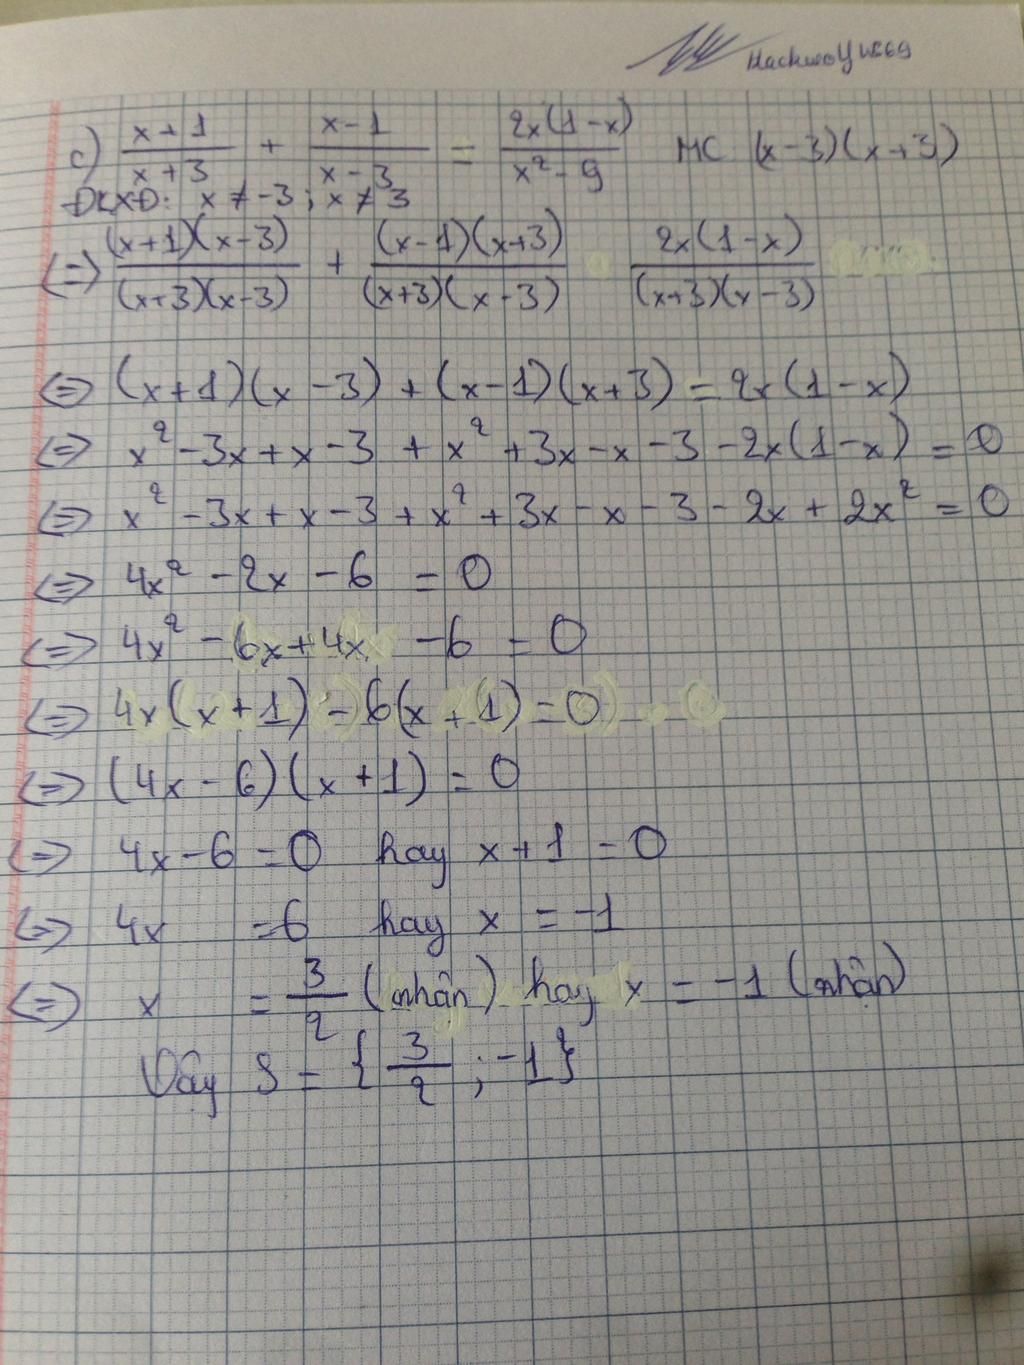 Hackwoy W669
c) (x+1)/(x+3) + (x-1)/(x-3) = 2x(1-x)/(x²-9) MC (x-3)(x+3)
ĐKXĐ: x ≠ -3; x ≠ 3
(=) (x+1)(x-3)/(x+3)(x-3) + (x-1)(x+3)/(x+3)(x-3) 2x(1-x)/(x+3)(x-3)
(=) (x+1)(x-3) + (x-1)(x+3) = 2x(1-x)
(=) x² -3x+x-3 + x² +3x-x-3-2x(1-x) = 0
(=) x² -3x+x-3+x²+3x-x-3-2x+2x² = 0
(=) 4x² -2x -6 = 0
(=) 4x² -6x+4x -6 = 0
(=) 4x(x+1) - 6(x+1) = 0
(=) (4x-6)(x+1) = 0
(=) 4x-6 = 0 hay x+1 = 0
(=) 4x = 6 hay x = -1
(=) x = 3/2 (nhận) hay x = -1 (nhận)
Vậy S = { 3/2 ; -1 }